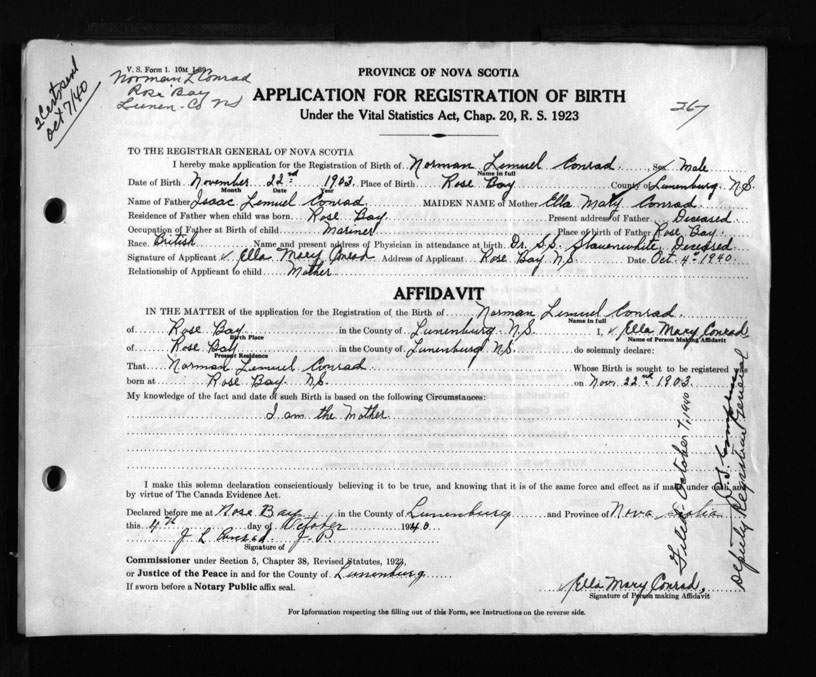 2 Certs sent
Oct 7/40
V. S. Form 1. 10M 1-39
Norman L Conrad
Rose Bay
Lunen. Co NS
PROVINCE OF NOVA SCOTIA
APPLICATION FOR REGISTRATION OF BIRTH
Under the Vital Statistics Act, Chap. 20, R. S. 1923
267
TO THE REGISTRAR GENERAL OF NOVA SCOTIA
I hereby make application for the Registration of Birth of Norman Lemuel Conrad Sex Male
Name in full
Date of Birth November 22nd 1903 Place of Birth Rose Bay County of Lunenburg. N.S.
Month Date Year
Name of Father Isaac Lemuel Conrad MAIDEN NAME of Mother Ella Mary Conrad
Residence of Father when child was born Rose Bay Present address of Father Deceased
Occupation of Father at Birth of child Mariner Place of birth of Father Rose Bay.
Race British Name and present address of Physician in attendance at birth Dr. Deceased
Signature of Applicant Ella Mary Conrad Address of Applicant Rose Bay N.S. Date Oct. 4th 1940.
Relationship of Applicant to child Mother
AFFIDAVIT
IN THE MATTER of the application for the Registration of the Birth of Norman Lemuel Conrad
Name in full
of Rose Bay in the County of Lunenburg. N.S. I, Ella Mary Conrad
Birth Place Name of Person Making Affidavit
of Rose Bay in the County of Lunenburg N.S. do solemnly declare:
Present Residence
That Norman Lemuel Conrad Whose Birth is sought to be registered was
born at Rose Bay N.S. on Nov. 22nd 1903
My knowledge of the fact and date of such Birth is based on the following Circumstances:
I am the Mother
I make this solemn declaration conscientiously believing it to be true, and knowing that it is of the same force and effect as if made under oath and
by virtue of The Canada Evidence Act.
Declared before me at Rose Bay in the County of Lunenburg and Province of Nova Scotia
this 4th day of October 1940
J L Conrad J. P.
Signature of
Commissioner under Section 5, Chapter 38, Revised Statutes, 1923
or Justice of the Peace in and for the County of Lunenburg
If sworn before a Notary Public affix seal.
Ella Mary Conrad,
Signature of Person making Affidavit
For Information respecting the filling out of this Form, see Instructions on the reverse side.
Filed October 7, 1940
Deputy Registrar General